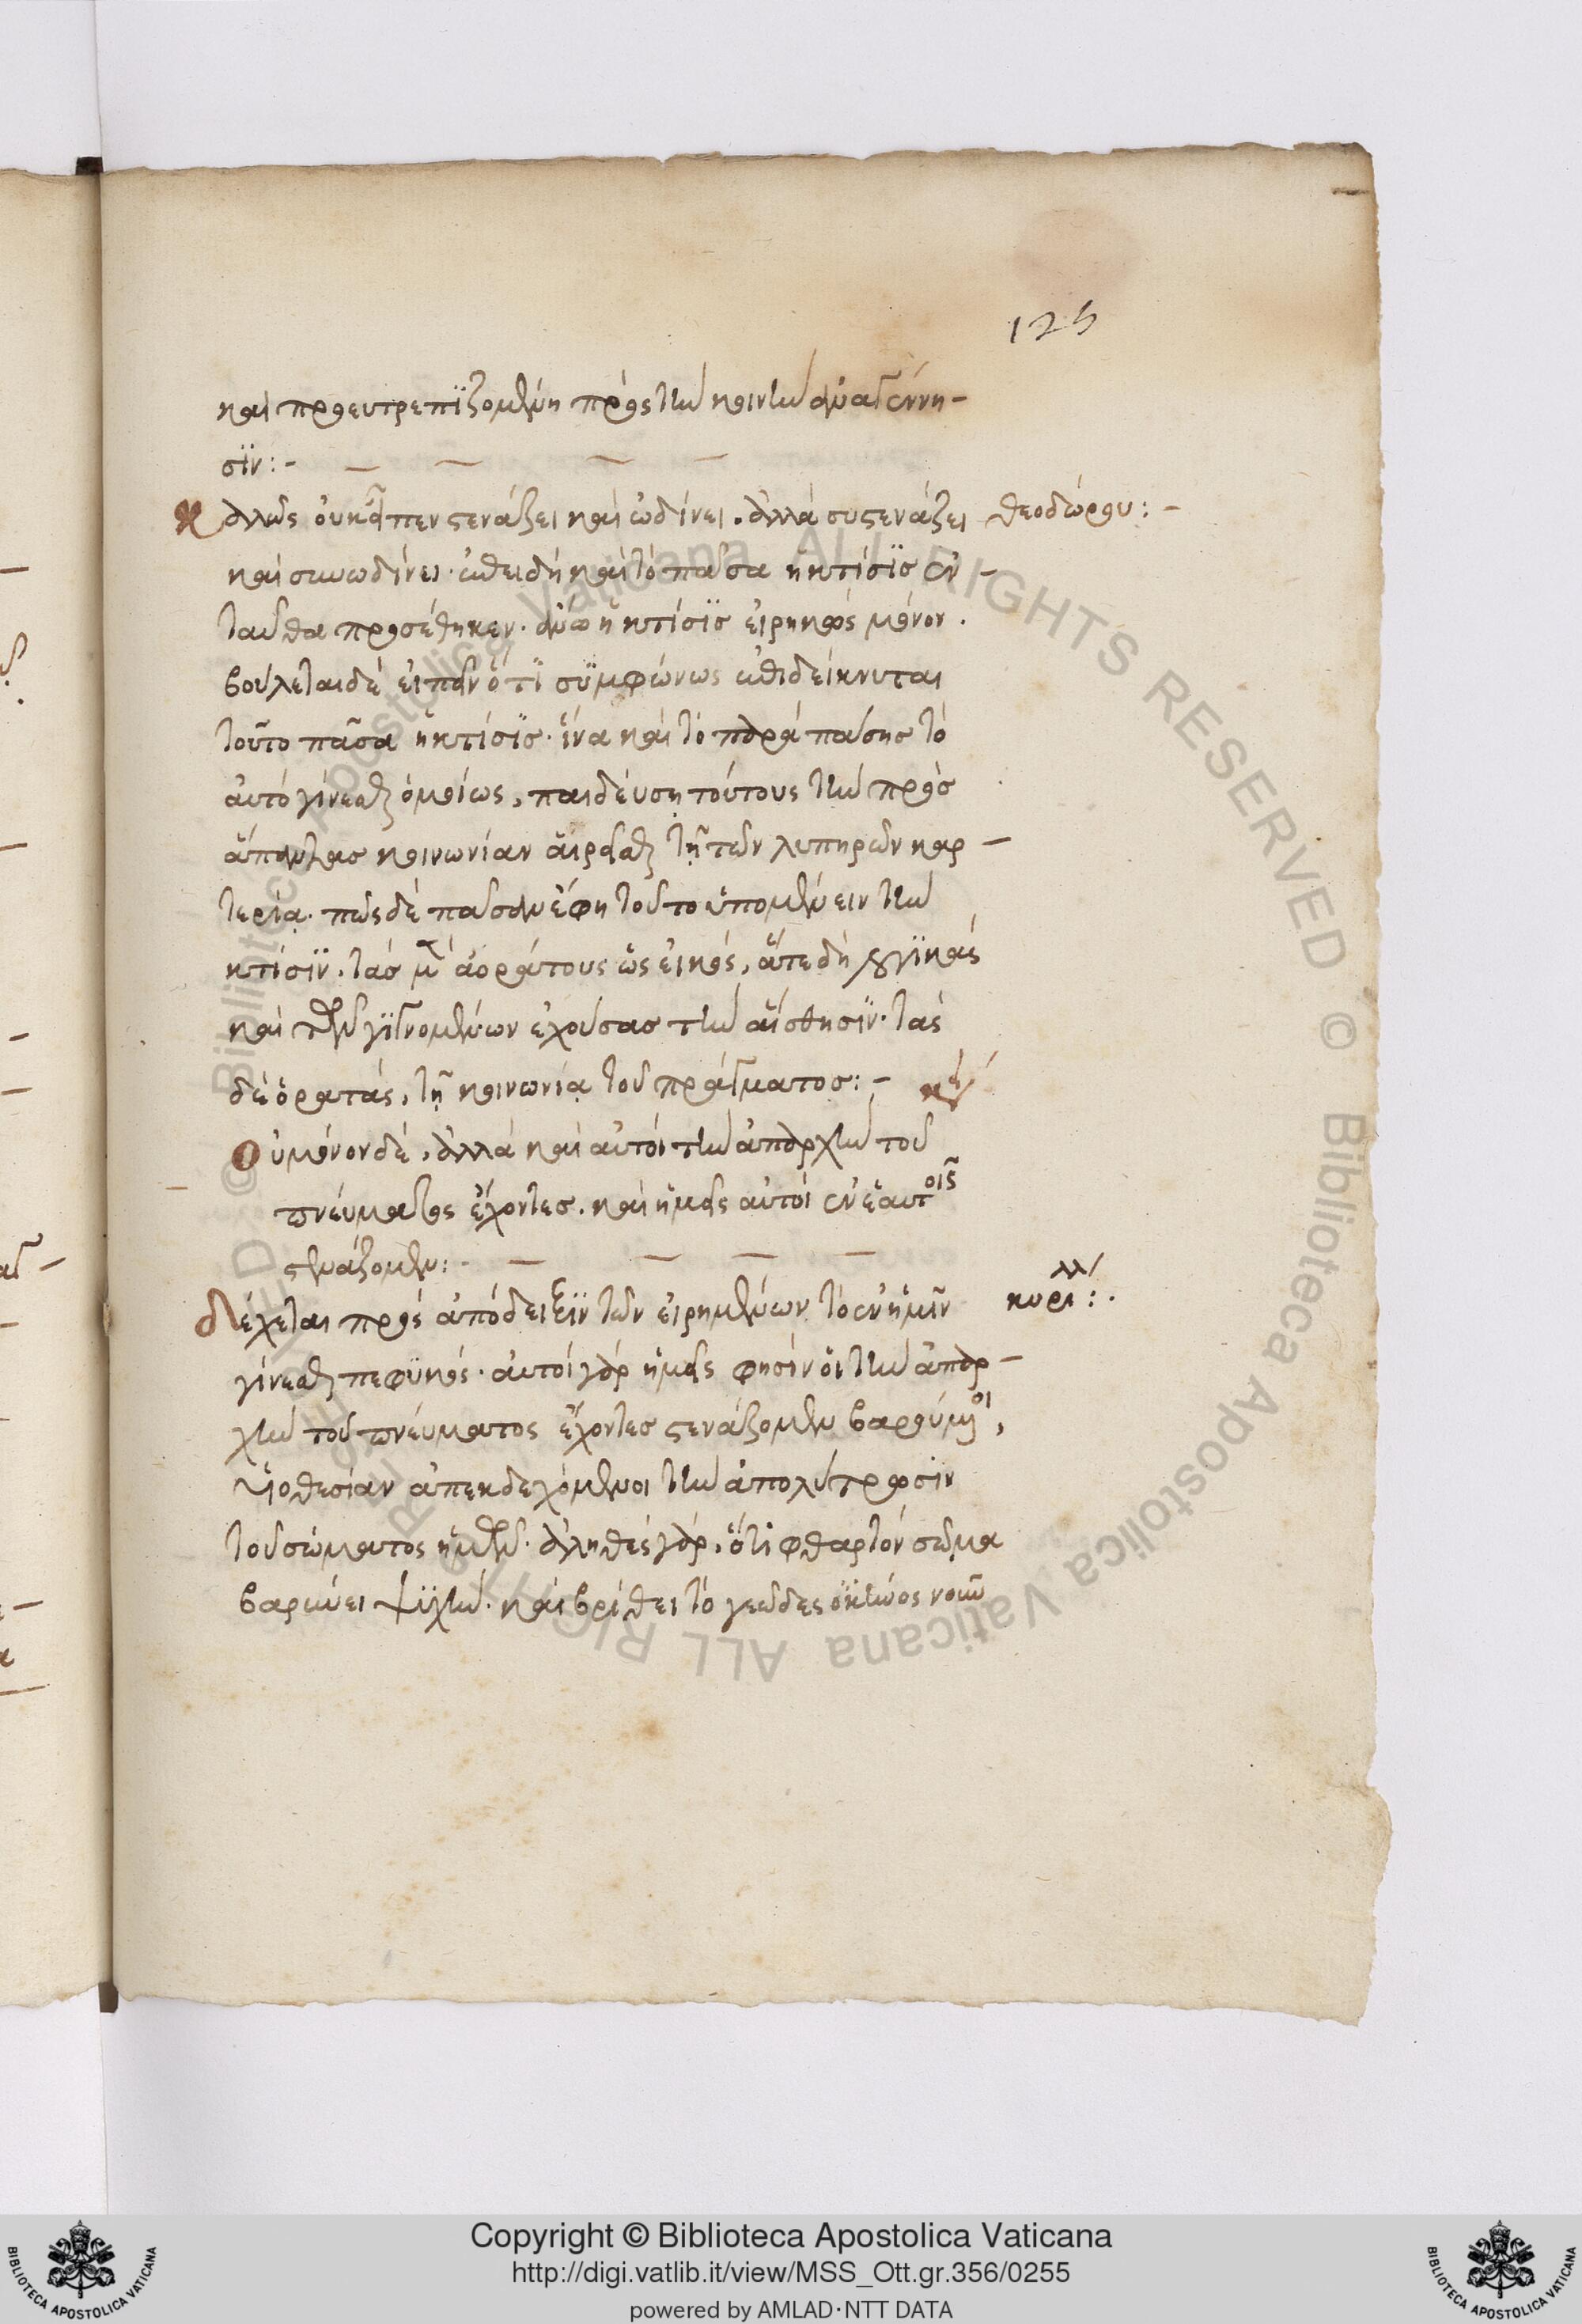 125
καὶ προευτρεπϊζομένη πρὸς τὴν κοινὴν ἀναγέννη-
σϊν:-
καλῶς οὐκ εἶπεν στενάζει καὶ ὠδίνει. ἀλλὰ συστενάζει θεοδώρου:-
καὶ συνωδίνει. ἐπειδὴ καὶ τὸ πᾶσα ἡ κτίσϊς ἐν-
ταῦθα προσέθηκεν. ἄνω ἡ κτίσϊς εἰρηκὼς μόνον.
βούλεται δὲ εἰπεῖν ὅτϊ συμφώνως ἐπιδείκνυται
τοῦτο πᾶσα ἡ κτίσϊς. ἵνα καὶ τὸ παρὰ πάσης τὸ
αὐτὸ γίνεσθαι ὁμοίως, παιδεύση τούτους τὴν πρὸς
ἅπαντας κοινωνίαν αἱρεῖσθαι τῇ τῶν λυπηρῶν καρ-
τερίᾳ. πῶς δὲ πᾶσαν ἔφη τοῦτο ὑπομένειν τὴν
κτίσϊν. τὰς μὲν ἀοράτους ὡς εἰκὸς, ἅτε δὴ λογϊκὰς
καὶ τῶν γϊγνομένων ἐχούσας τὴν αἴσθησϊν. τὰς
δὲ ὁρατὰς, τῇ κοινωνίᾳ τοῦ πράγματος:- κεί
Οὐ μόνον δὲ, ἀλλὰ καὶ αὐτοὶ τὴν ἀπαρχὴν τοῦ
πνεύματος ἔχοντες. καὶ ἡμεῖς αὐτοὶ ἐν ἑαυτοῖς
στενάζομεν:-
δέχεται πρὸς ἀπόδειξϊν τῶν εἰρημένων τὸ ἐν ἡμῖν κυρίλλ:.
γίνεσθαι πεφϋκός. αὐτοὶ γὰρ ἡμεῖς φησὶν οἱ τὴν ἀπαρ-
χὴν τοῦ πνεύματος ἔχοντες στενάζομεν βαρούμενοι,
υἱοθεσίαν ἀπεκδεχόμενοι τὴν ἀπολύτρωσιν
τοῦ σώματος ἡμῶν. ἀληθὲς γὰρ, ὅτι φθαρτὸν σῶμα
βαρύνει ψϋχὴν. καὶ βρίθει τὸ γεῶδες σκῆνος νοῦν
Copyright © Biblioteca Apostolica Vaticana
http://digi.vatlib.it/view/MSS_Ott.gr.356/0255
powered by AMLAD·NTT DATA